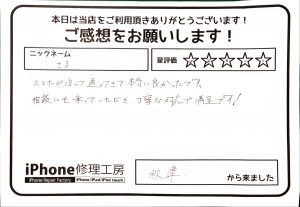 本日は当店をご利用頂きありがとうございます！
ご感想をお願いします！
ニックネーム
さき
星評価
☆☆☆☆☆
スマホが直って返ってきて本当に良かったです。
相談にも乗っていただき、丁寧な対応で満足です！
iPhone修理工房
iPhone Repair Factory
iPhone/iPad/iPod touch
秋葉
から来ました